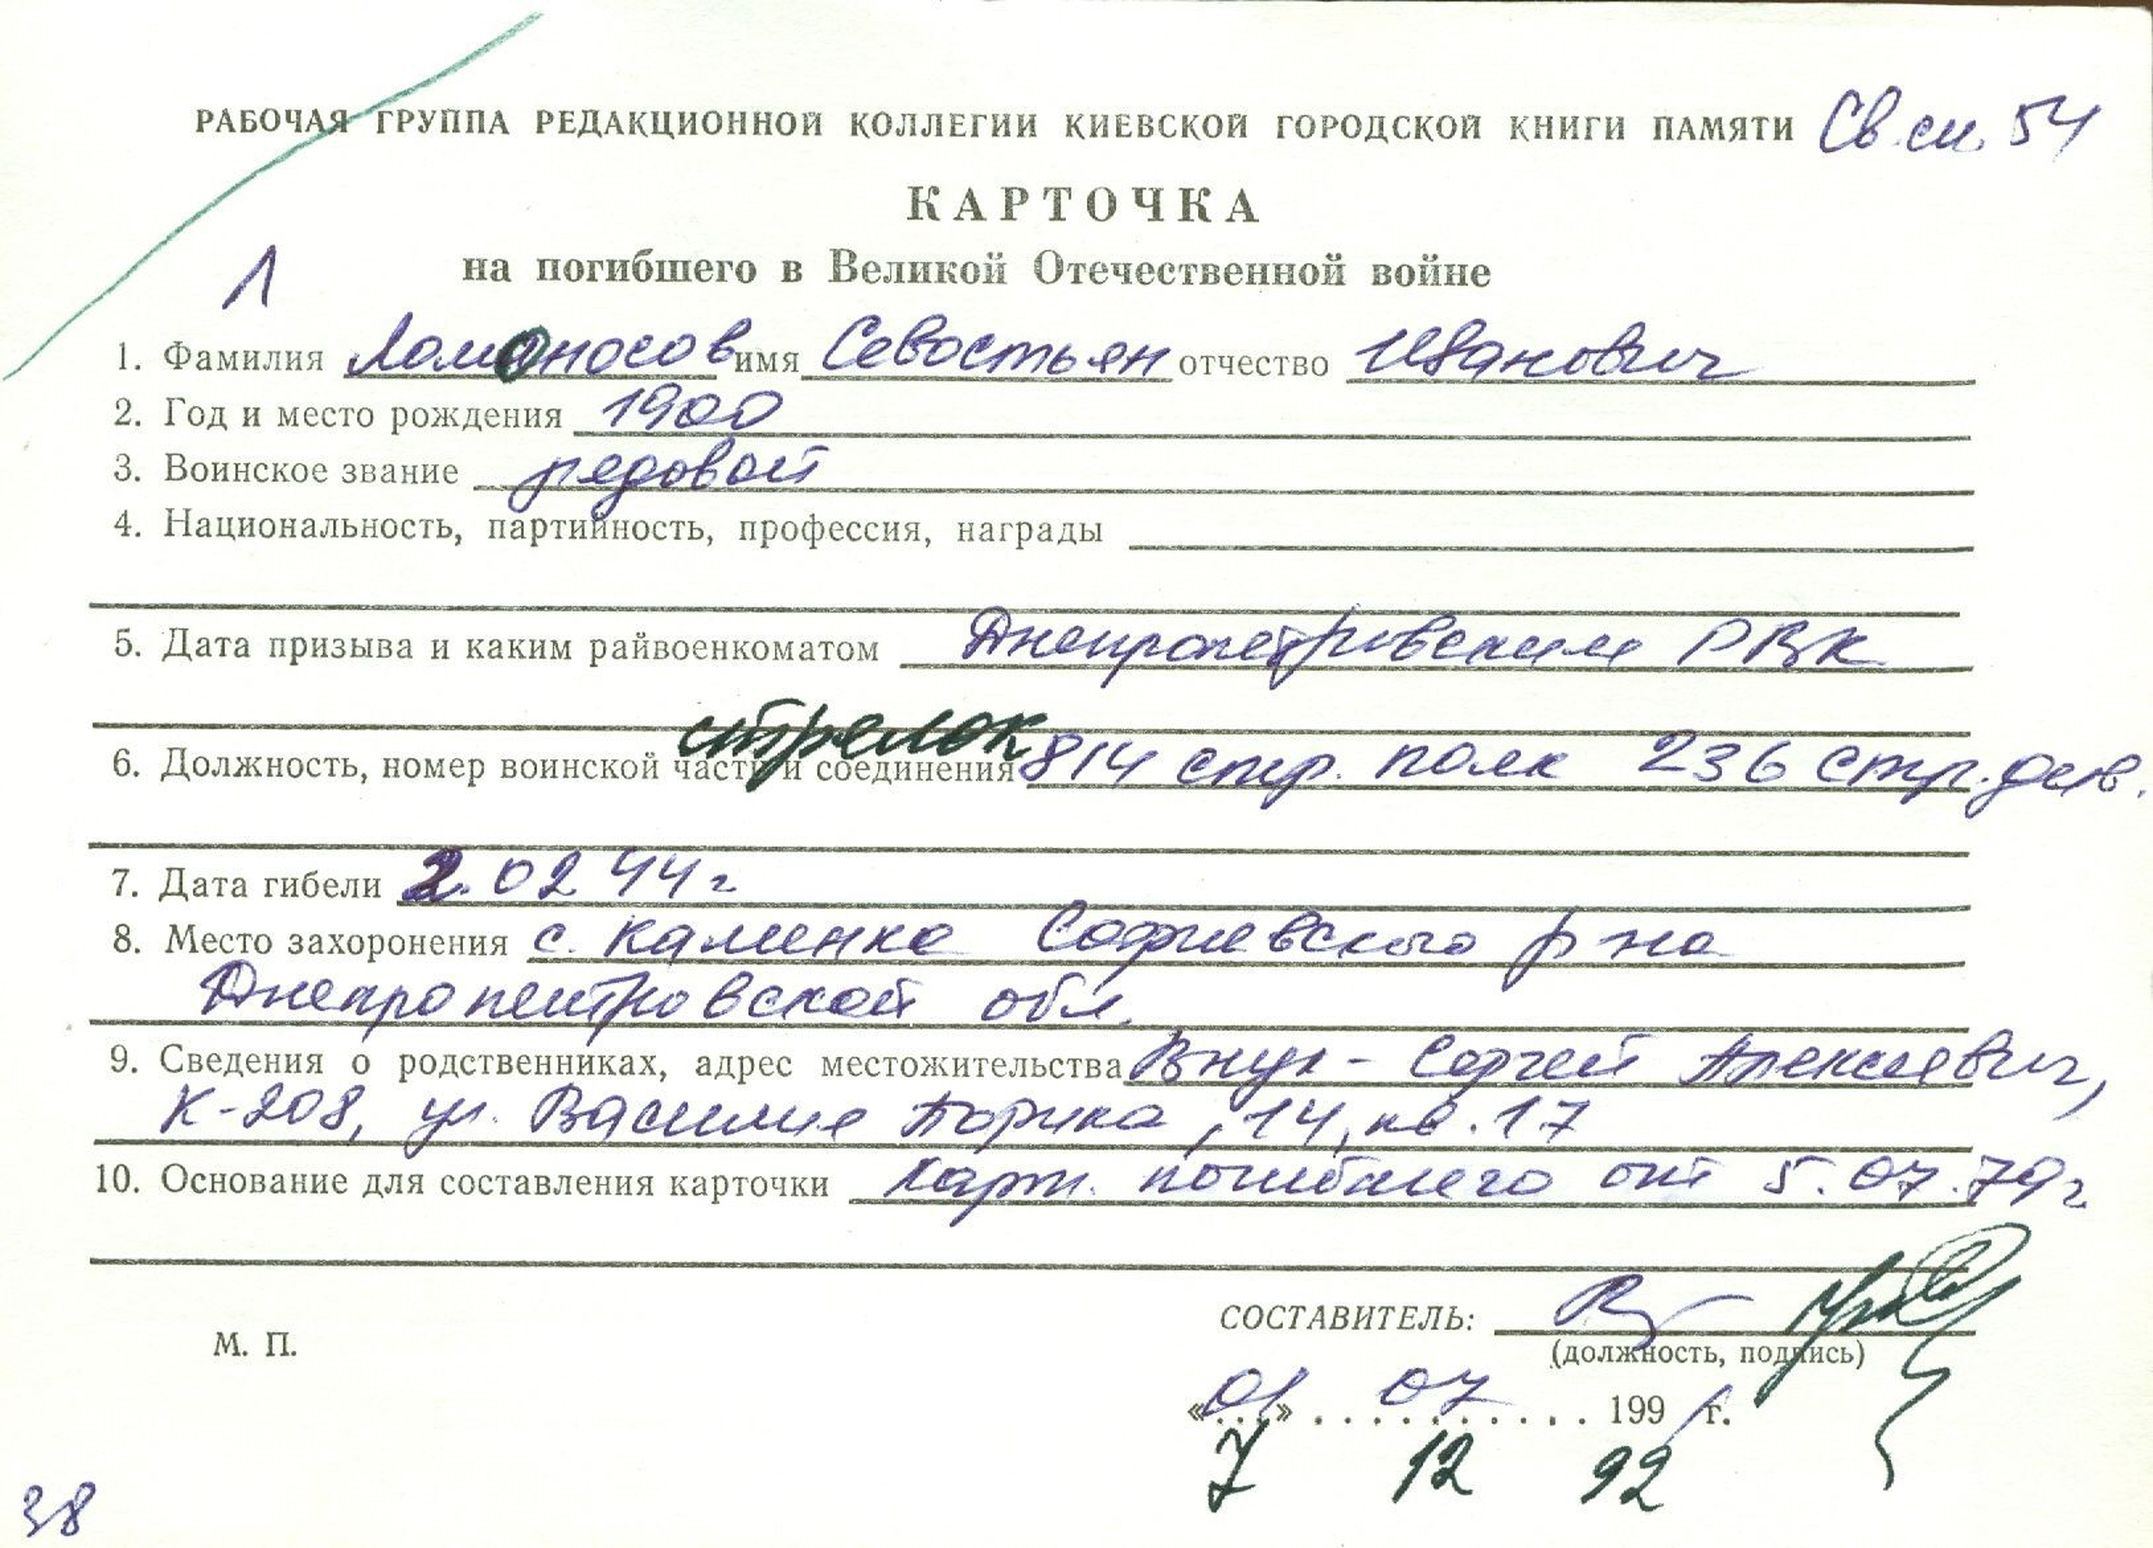 РАБОЧАЯ ГРУППА РЕДАКЦИОННОЙ КОЛЛЕГИИ КИЕВСКОЙ ГОРОДСКОЙ КНИГИ ПАМЯТИ Св.сп. 54
КАРТОЧКА
на погибшего в Великой Отечественной войне
Л
1. Фамилия Ломоносов имя Севостьян отчество Иванович
2. Год и место рождения 1900
3. Воинское звание рядовой
4. Национальность, партийность, профессия, награды
5. Дата призыва и каким райвоенкоматом Днепропетровским РВК
стрелок
6. Должность, номер воинской части и соединения 814 стр. полк 236 стр. див.
7. Дата гибели 2.02 44 г
8. Место захоронения с. Каменка Софиевского р-на
Днепропетровской обл.
9. Сведения о родственниках, адрес местожительства Внук - Сергей Алексеевич,
К-208, ул. Василия Порика, 14, кв. 17
10. Основание для составления карточки Карт. погибшего от 5.07.79 г
СОСТАВИТЕЛЬ:
М. П.
(должность, подпись)
«01» 07 1991 г.
7 12 92
38